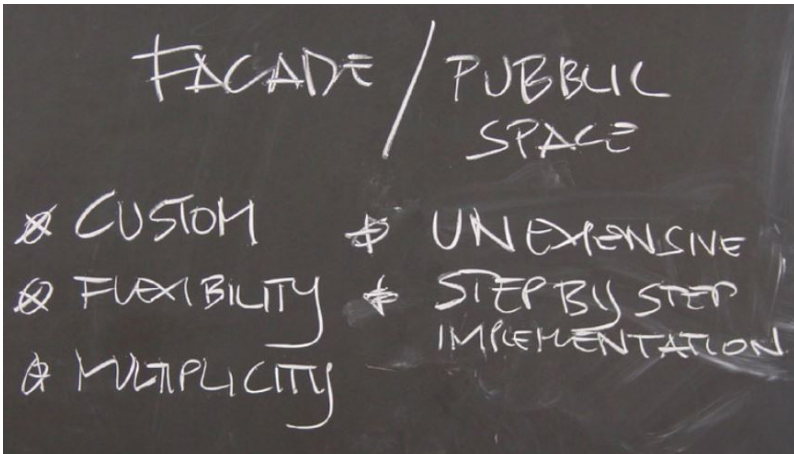 FACADE / PUBBLIC
SPACE
CUSTOM
FLEXIBILITY
MULTIPLICITY
UNEXENSIVE
STEP BY STEP
IMPLEMENTATION